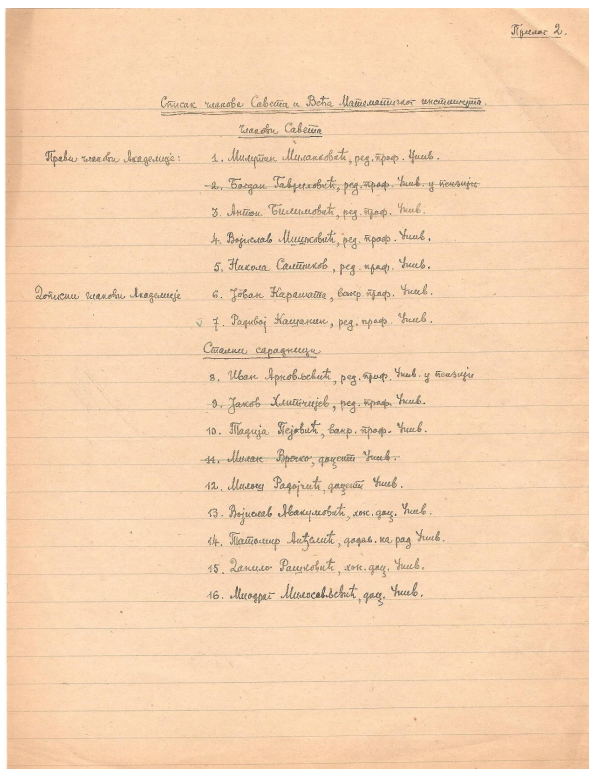 Прилог 2.
Списак чланова Савета и Већа Математичког института
Чланови Савета
Прави чланови Академије: 1. Милутин Миланковић, ред. проф. Унив.
2. Богдан Гавриловић, ред. проф. Унив. у пензији
3. Антон Билимовић, ред. проф. Унив.
4. Војислав Мишковић, ред. проф. Унив.
5. Никола Салтиков, ред. проф. Унив.
Дописни чланови Академије 6. Јован Карамата, ванр. проф. Унив.
7. Радивој Кашанин, ред. проф. Унив.
Стални сарадници
8. Иван Арновљевић, ред. проф. Унив. у пензији
9. Јаков Хлитчијев, ред. проф. Унив.
10. Тадија Пејовић, ванр. проф. Унив.
11. Милан Вречко, доцент Унив.
12. Милош Радојчић, доцент Унив.
13. Војислав Авакумовић, хон. доц. Унив.
14. Татомир Анђелић, додав. на рад Унив.
15. Данило Рашковић, хон. доц. Унив.
16. Миодраг Милосављевић, доц. Унив.